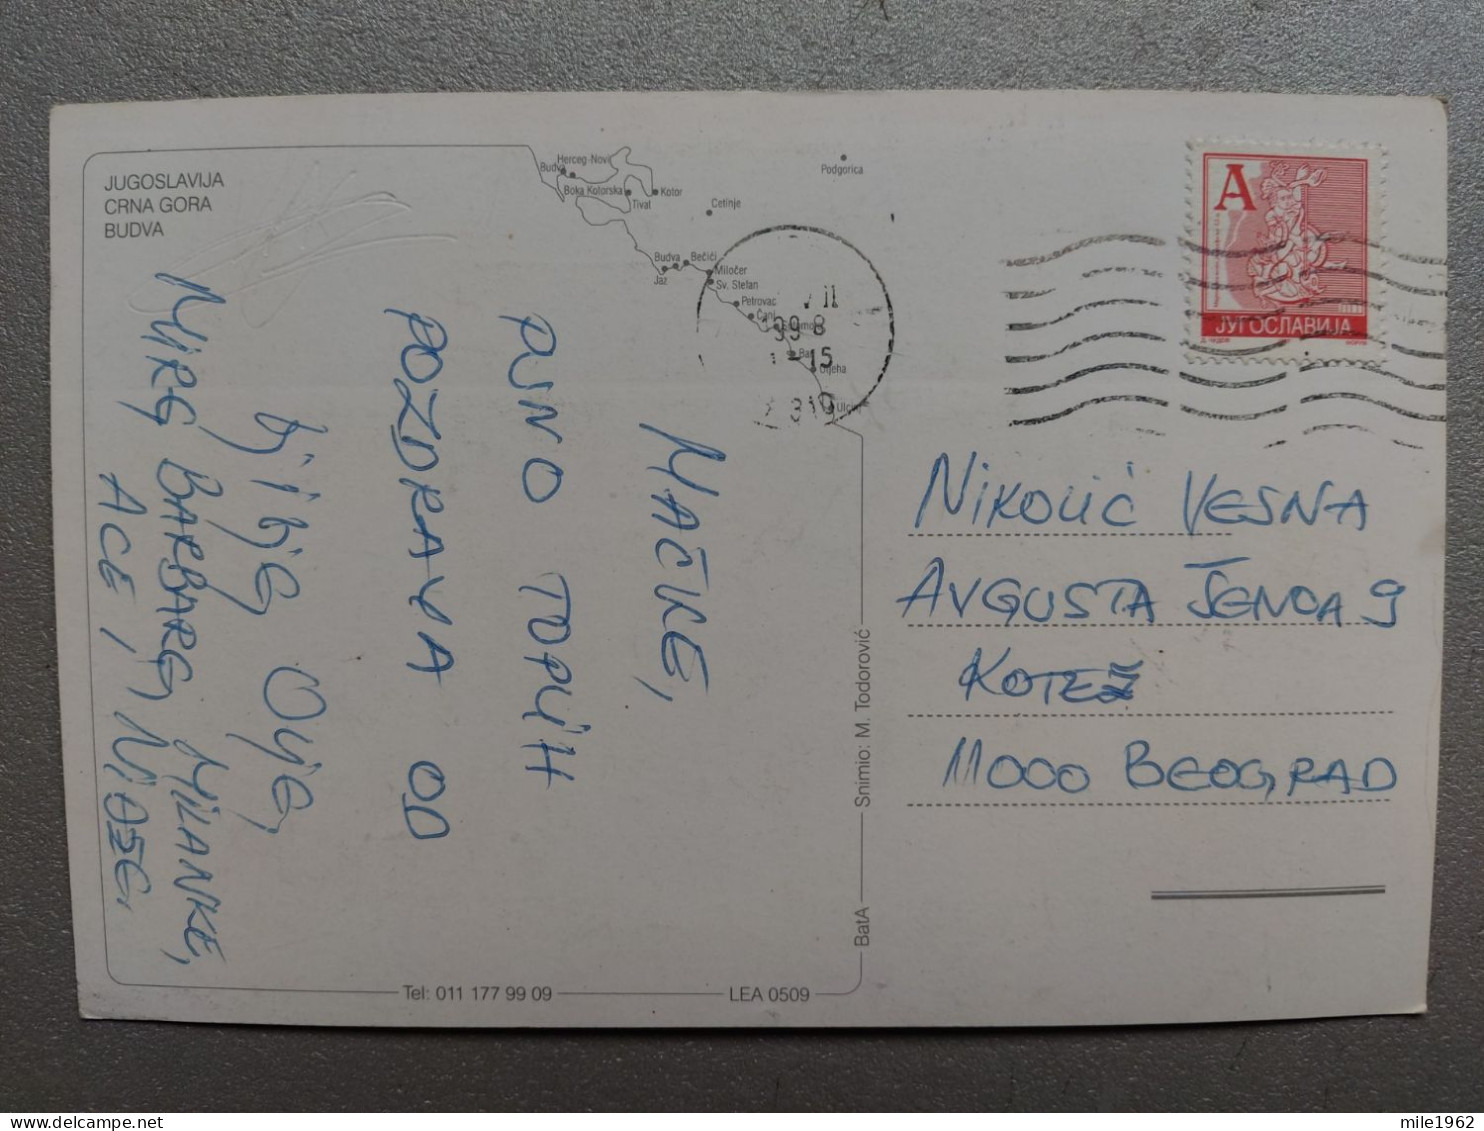 JUGOSLAVIJA
CRNA GORA
BUDVA
Herceg-Novi
Budva
Boka Kotorska
Kotor
Tivat
Cetinje
Podgorica
Budva
Bečići
Jaz
Miločer
Sv. Stefan
Petrovac
Čanj
Ba
Ulcinj
VII
1998
-15
A
ЈУГОСЛАВИЈА
MAČKE,
PUNO TOPLIH
POZDRAVA OD
MIRE BARBARE, MILANKE,
ACE I NIDŽE.
NIKOLIĆ VESNA
AVGUSTA ŠENOA 9
KOTEŽ
11000 BEOGRAD
BatA
Snimio: M. Todorović
Tel: 011 177 99 09
LEA 0509
mile1962